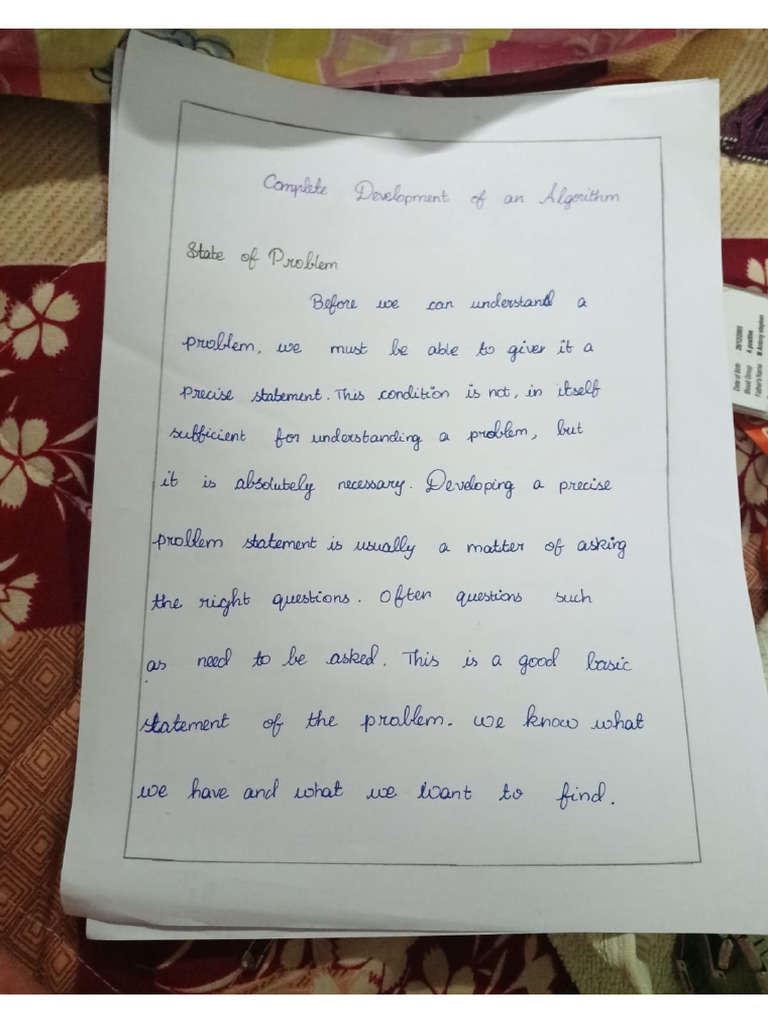 Complete Development of an Algorithm
State of Problem
Before we can understand a
problem, we must be able to giver it a
precise statement. This condition is not, in itself
sufficient for understanding a problem, but
it is absolutely necessary. Developing a precise
problem statement is usually a matter of asking
the right questions. Often questions such
as need to be asked. This is a good basic
statement of the problem. we know what
we have and what we want to find.
Date of Birth
Blood Group A positive
Father's Name M Antony stephen